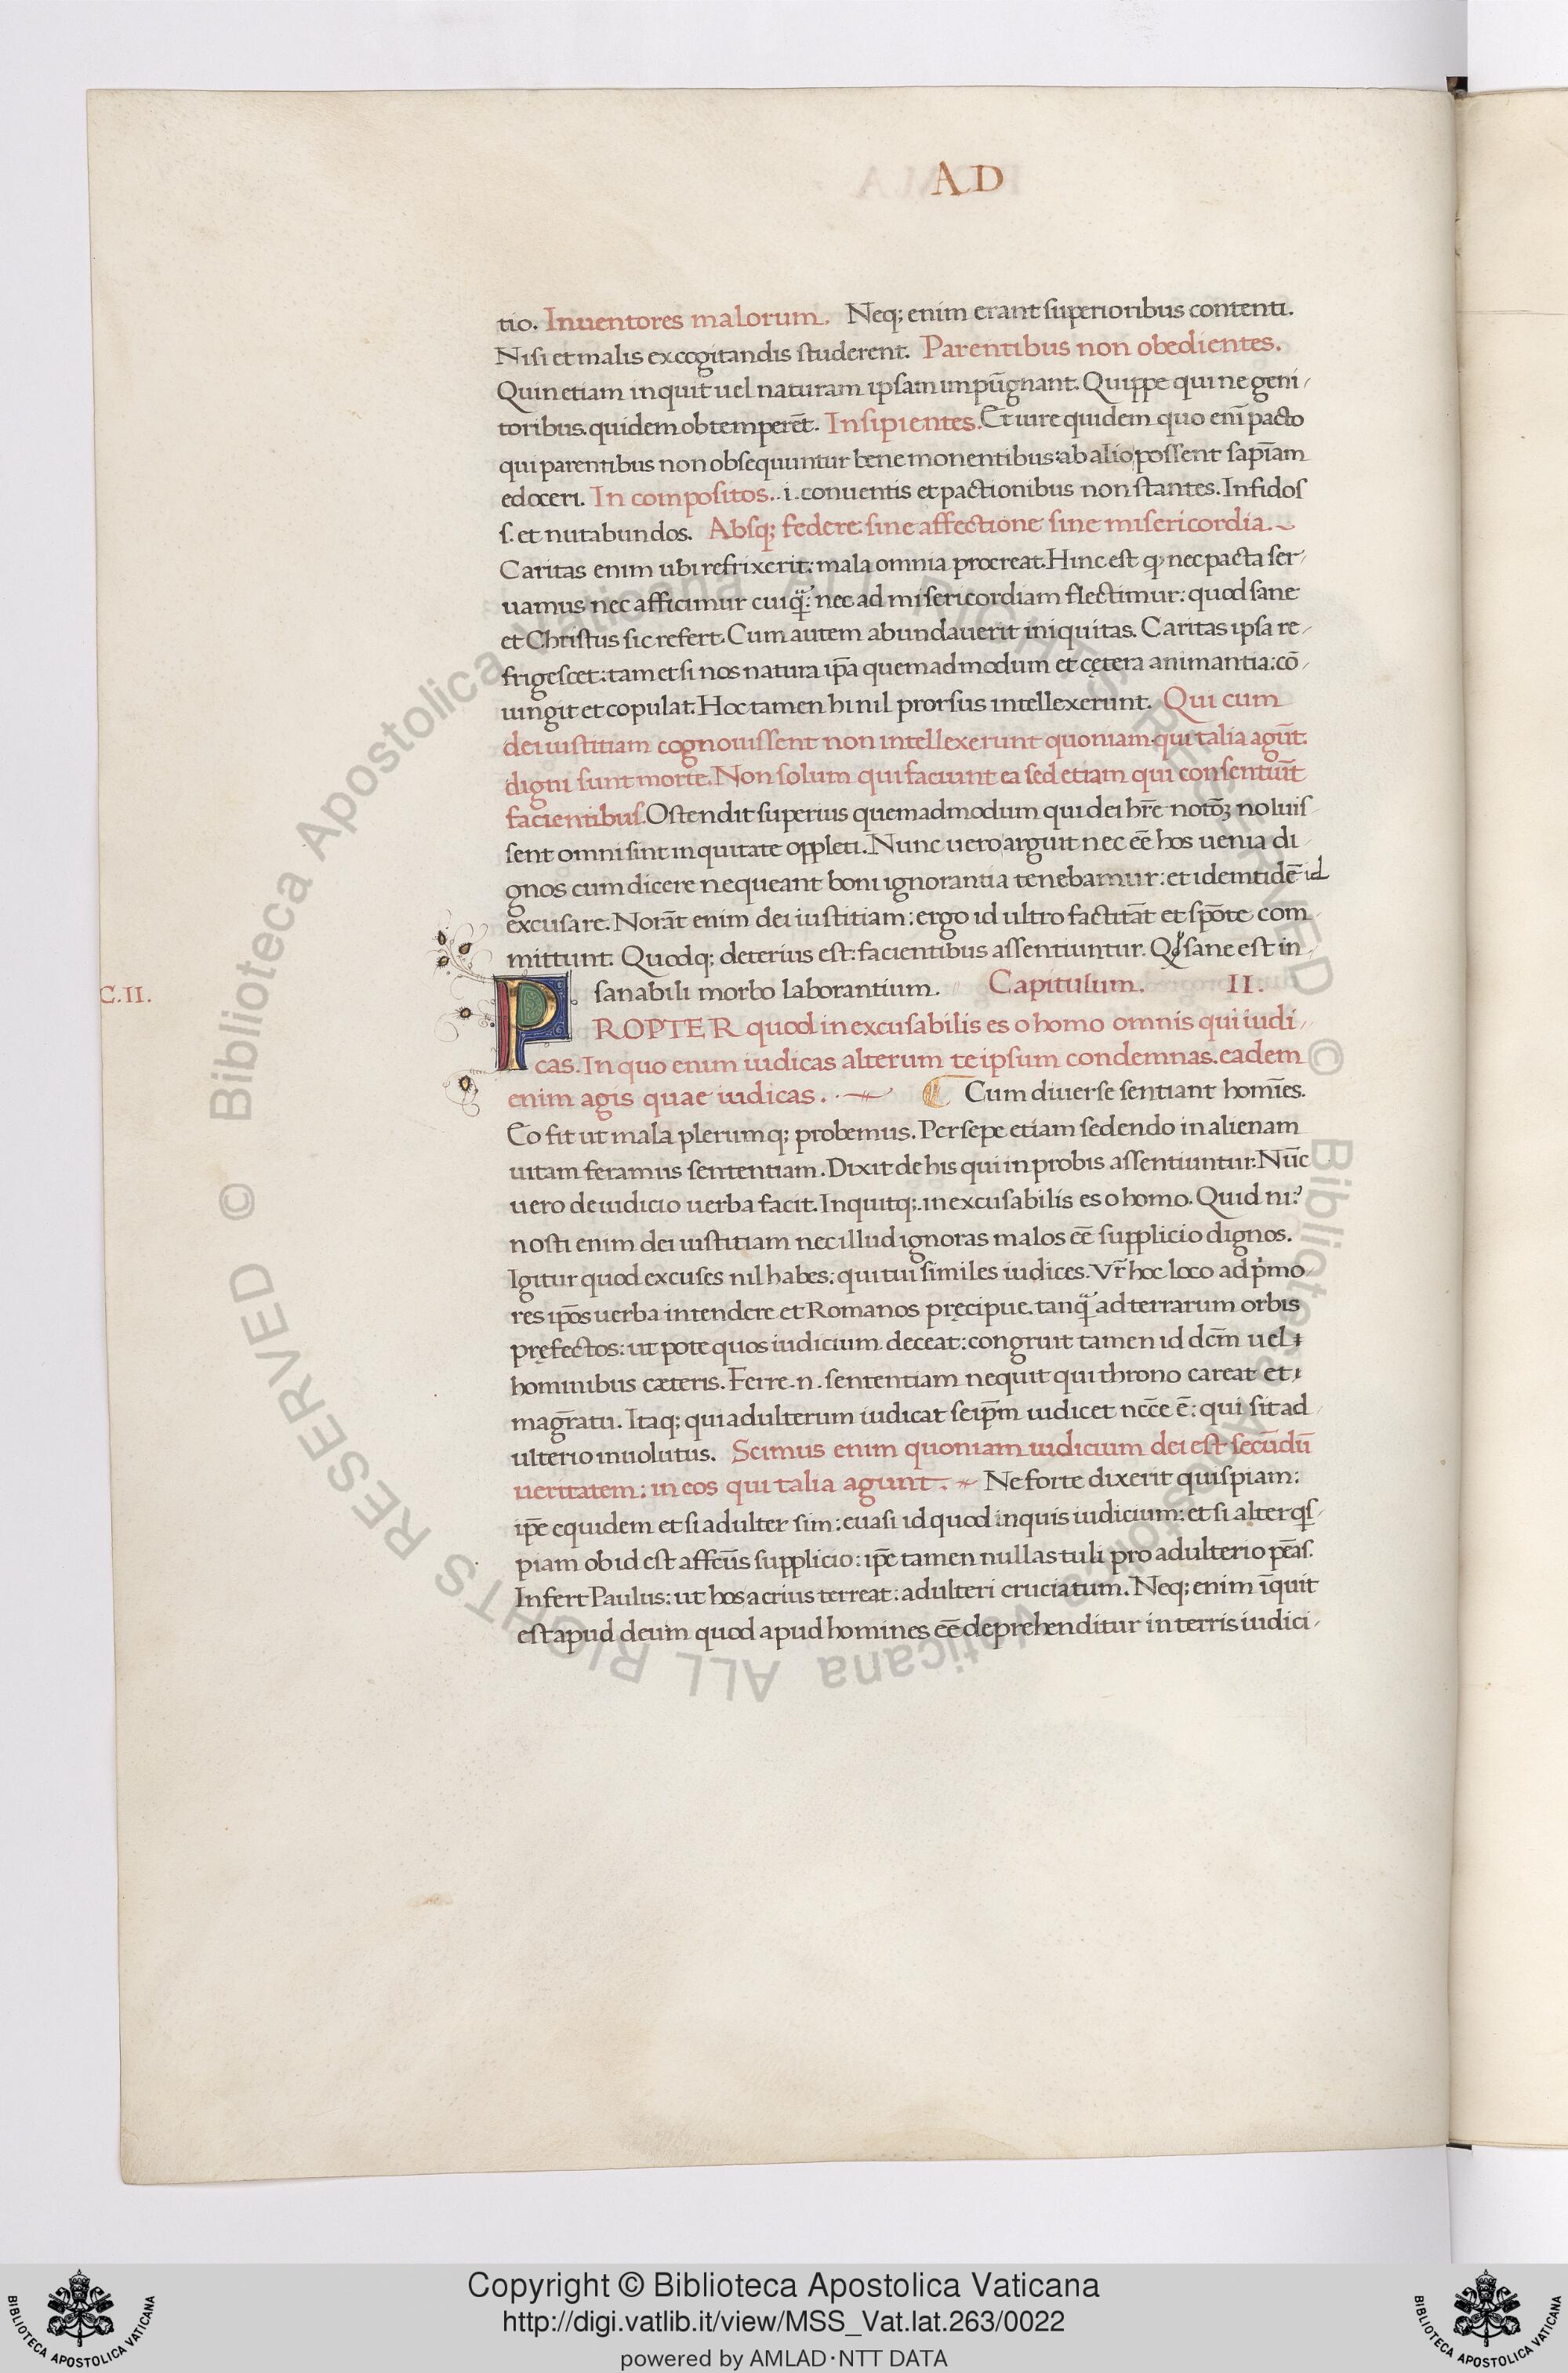 AD
tio. Inuentores malorum. Neq; enim erant superioribus contenti.
Nisi et malis excogitandis studerent. Parentibus non obedientes.
Quin etiam inquit uel naturam ipsam impūgnant. Quippe qui ne geni/
toribus quidem obtemperēt. Insipientes. Et iure quidem quo enī pacto
qui parentibus non obsequuntur bene monentibus: ab alio possent sapīam
edoceri. In compositos. .i. conuentis et pactionibus non stantes. Infidos
s. et nutabundos. Absq; federe sine affectione sine misericordia.
Caritas enim ubi refrixerit: mala omnia procreat. Hinc est ꝙ nec pacta ser/
uamus nec afficimur cuiq̃: nec ad misericordiam flectimur: quod sane
et Christus sic refert. Cum autem abundauerit iniquitas. Caritas ipsa re/
frigescet: tametsi nos natura ip̄a quemadmodum et cętera animantia: cō/
iungit et copulat. Hoc tamen hi nil prorsus intellexerunt. Qui cum
dei iustitiam cognouissent non intellexerunt quoniam qui talia agūt.
digni sunt morte. Non solum qui faciunt ea sed etiam qui consentiūt
facientibus. Ostendit superius quemadmodum qui dei hr̄e notōꝫ noluis
sent omni sint inquitate oppleti. Nunc uero arguit nec eē hos uenia di/
gnos cum dicere nequeant boni ignorantia tenebamur: et idemtidē id
excusare. Norāt enim dei iustitiam: ergo id ultro factitāt et spōte com
mittunt. Quodq; deterius est: facientibus assentiuntur. Qđ sane est in/
C.II.
sanabili morbo laborantium. Capitulum. II.
PROPTER quod inexcusabilis es o homo omnis qui iudi/
cas. In quo enim iudicas alterum te ipsum condemnas. eadem
enim agis quae iudicas. Cum diuerse sentiant homīes.
Eo fit ut mala plerumq; probemus. Persepe etiam sedendo in alienam
uitam feramus sententiam. Dixit de his qui inprobis assentiuntur. Nūc
uero de iudicio uerba facit. Inquitq;. inexcusabilis es o homo. Quid ni?
nosti enim dei iustitiam nec illud ignoras malos eē supplicio dignos.
Igitur quod excuses nil habes: qui tui similes iudices. Vr̄ hoc loco ad pʳmo
res ip̄os uerba intendere et Romanos pręcipue. tanq̃ ad terrarum orbis
pręfectos: ut pote quos iudicium deceat: congruit tamen id dcm̄ uel
hominibus cæteris. Ferre .n. sententiam nequit qui throno careat et
magr̄atu. Itaq; qui adulterum iudicat seip̄m iudicet ncc̄e ē: qui sit ad
ulterio inuolutus. Scimus enim quoniam iudicium dei est secūdū
ueritatem: in eos qui talia agunt. Ne forte dixerit quispiam:
ip̄e equidem et si adulter sim: euasi id quod inquis iudicium: et si alter qs/
piam ob id est affcūs supplicio: ip̄e tamen nullas tuli pro adulterio pēas.
Infert Paulus: ut hos acrius terreat: adulteri cruciatum. Neq; enim īquit
est apud deum quod apud homines eē deprehenditur in terris iudici/
© Biblioteca Apostolica Vaticana ALL RIGHTS RESERVED © Biblioteca Apostolica Vaticana ALL RIGHTS RESERVED
Copyright © Biblioteca Apostolica Vaticana
http://digi.vatlib.it/view/MSS_Vat.lat.263/0022
powered by AMLAD·NTT DATA
BIBLIOTECA APOSTOLICA VATICANA
BIBLIOTECA APOSTOLICA VATICANA